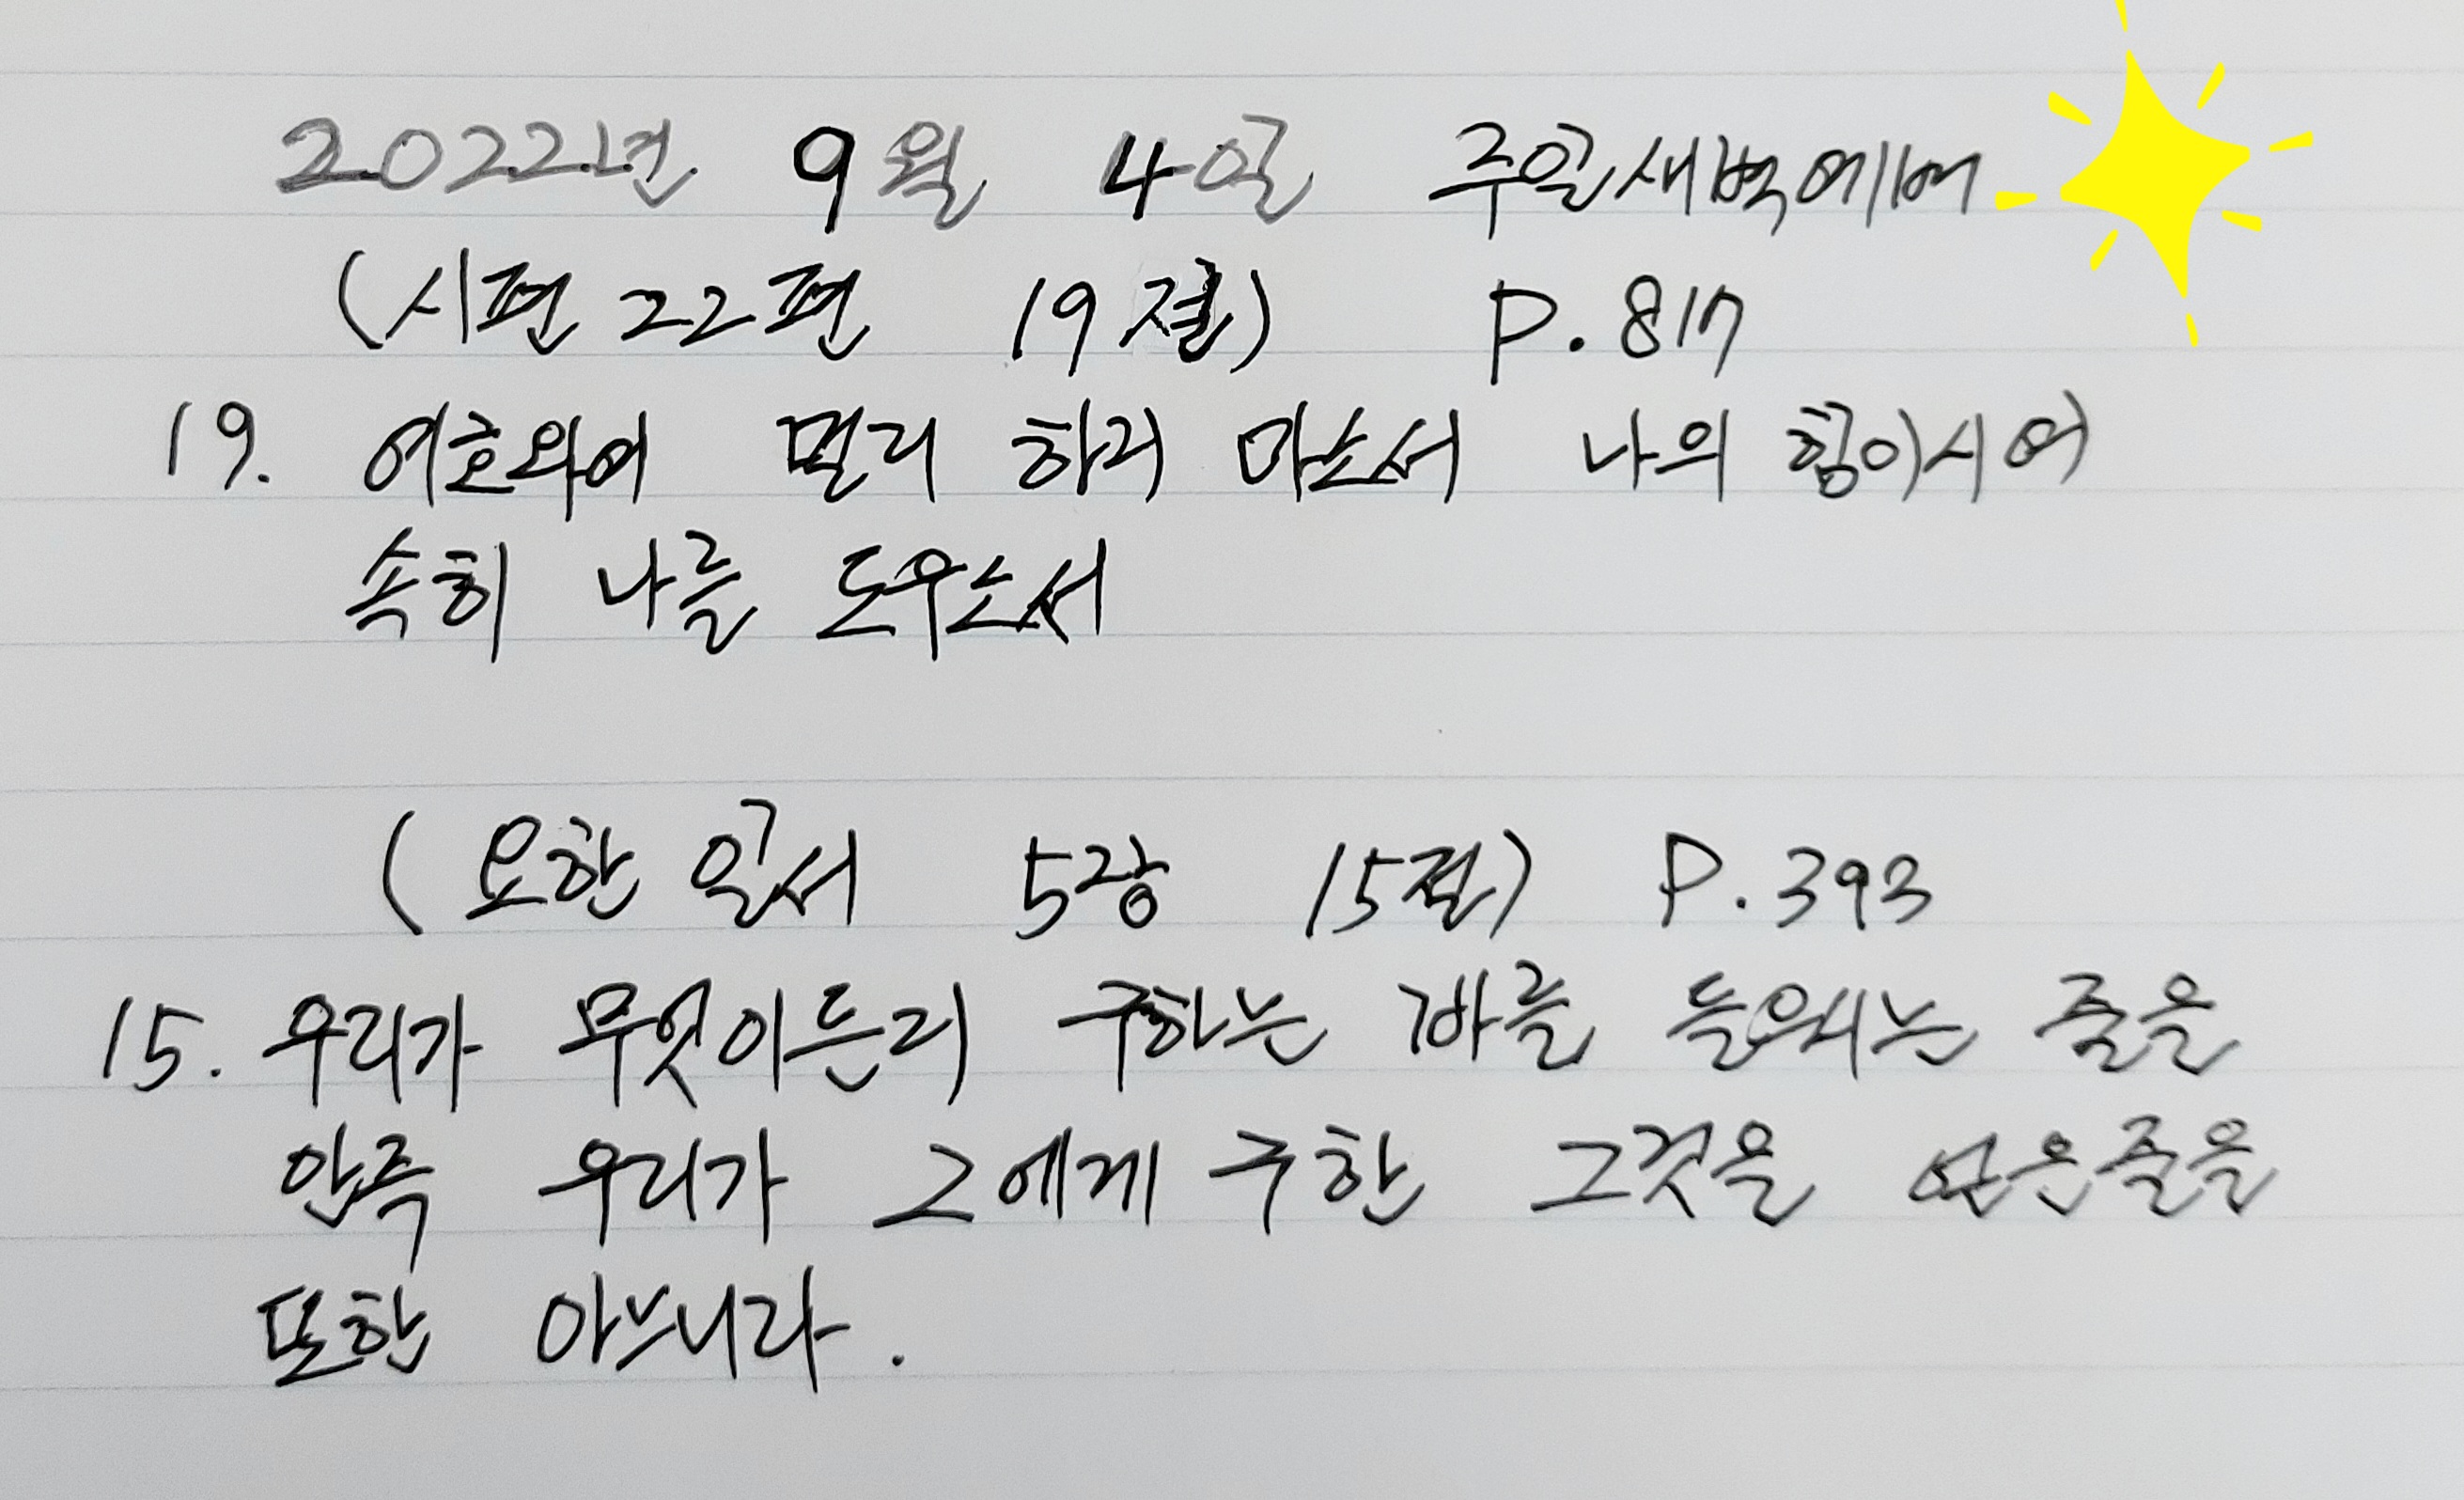 2022년 9월 4일 주일새벽예배
(시편 22편 19절) P. 817
19. 여호와여 멀리 하지 마소서 나의 힘이시여
속히 나를 도우소서
(요한 일서 5장 15절) P. 393
15. 우리가 무엇이든지 구하는 바를 들으시는 줄을
안즉 우리가 그에게 구한 그것을 얻은줄을
또한 아느니라.